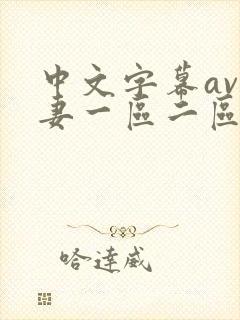 中文字幕av
妻一區二區
哈達威